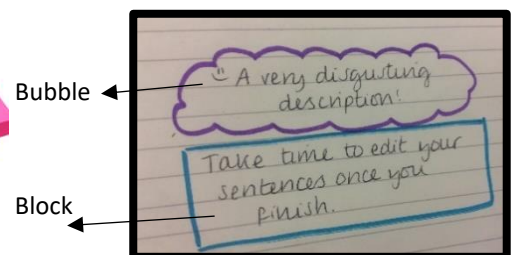 Bubble
A very disgusting
description!
Take time to edit your
sentences once you
finish.
Block